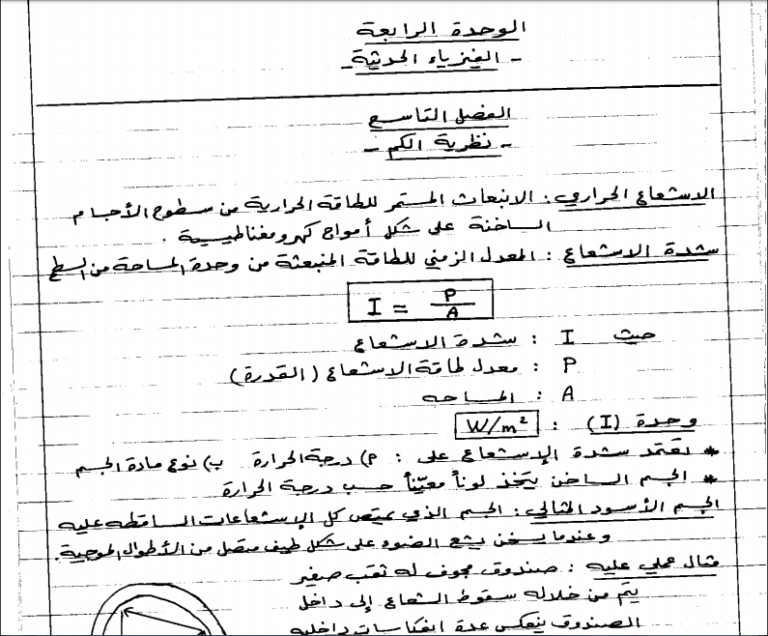 الوحدة الرابعة
- الفيزياء الحديثة -
الفصل التاسع
- نظرية الكم -
الاشعاع الحراري : الانبعاث المستمر للطاقة الحرارية من سطوح الأجسام
الساخنة على شكل أمواج كهرومغناطيسية .
شدة الاشعاع : المعدل الزمني للطاقة المنبعثة من وحدة المساحة من السطح
I = P/A
حيث I : شدة الاشعاع
P : معدل طاقة الاشعاع (القدرة)
A : المساحه
وحدة (I) : W/m²
* تعتمد شدة الإشعاع على : ٩) درجة الحرارة ب) نوع مادة الجسم
* الجسم الساخن يتخذ لوناً معيّناً حسب درجة الحرارة
الجسم الأسود المثالي : الجسم الذي يمتص كل الإشعاعات الساقطه عليه
وعندما يسخن يشع الضوء على شكل طيف متصل من الأطوال الموجية.
مثال عملي عليه : صندوق مجوف له ثقب صغير
يتم من خلاله سقوط الشعاع إلى داخل
الصندوق ينعكس عدة انعكاسات داخليه